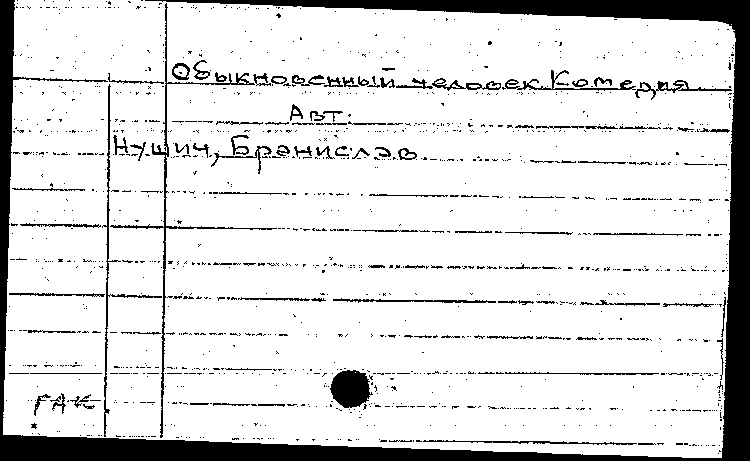 Обыкновенный человек. Комедия.
Авт:
Нушич, Бранислав.
ГАК